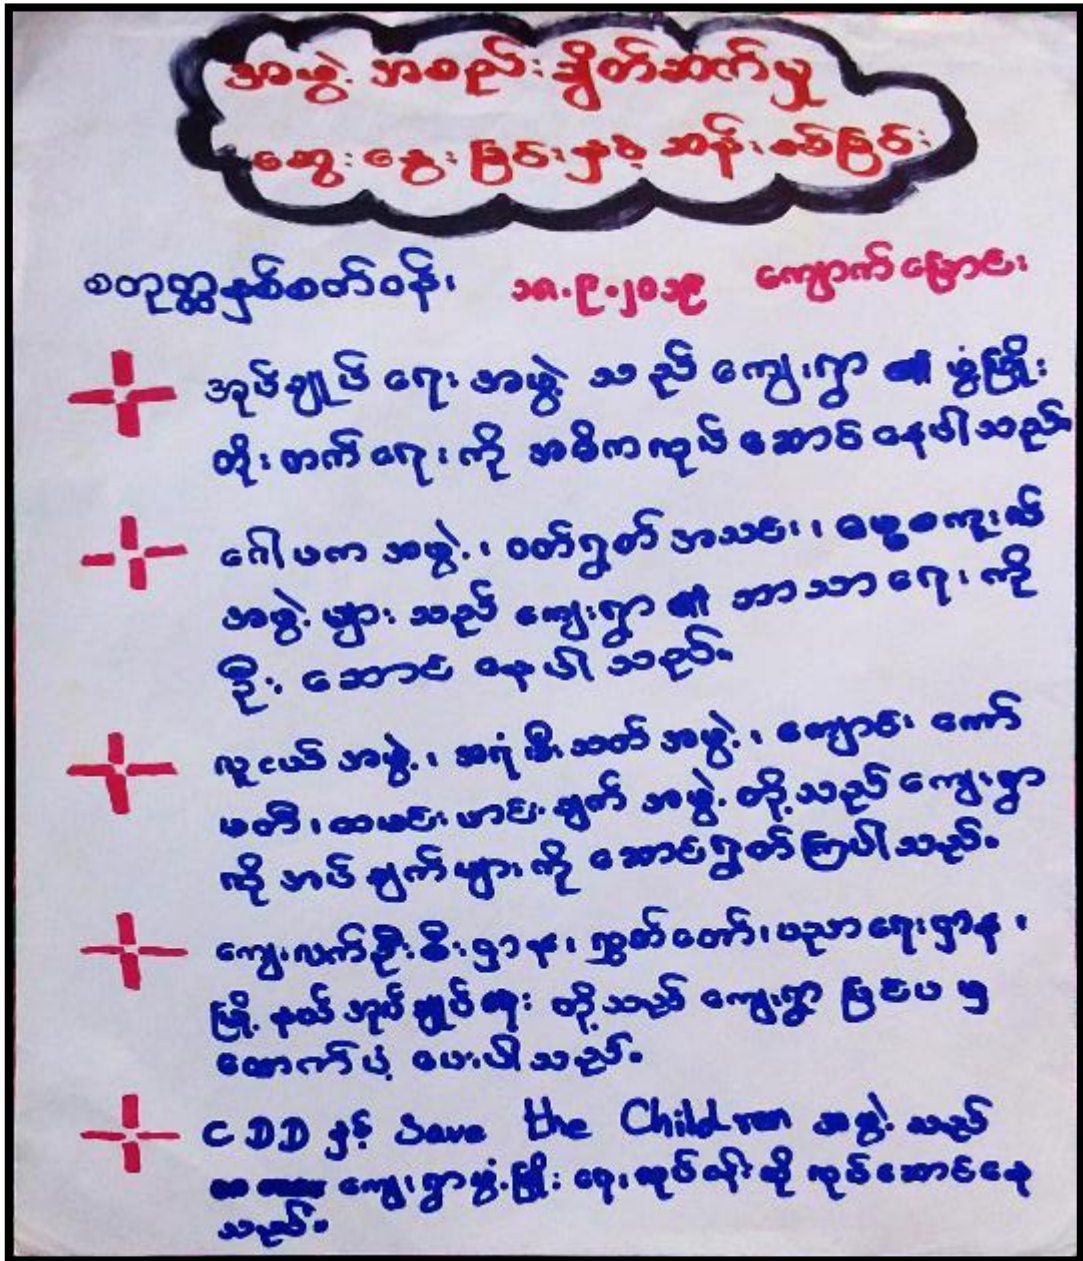 အဖွဲ့အစည်းချိတ်ဆက်မှု
ဆွေးနွေးခြင်းနှင့် ဆန်းစစ်ခြင်း
စတုတ္ထနှစ်စတ်ဝန်း ၁၈.၉.၂၀၁၉ ကျောက်မြောင်း
အုပ်ချုပ်ရေးအဖွဲ့သည် ကျေးရွာ၏ ဖွံ့ဖြိုး
တိုးတက်ရေးကို အဓိကလုပ်ဆောင်နေပါသည်။
ဂေါပကအဖွဲ့၊ ဝတ်ရွတ်အသင်း၊ ဓမ္မစကူးလ်
အဖွဲ့များသည် ကျေးရွာ၏ ဘာသာရေးကို
ဦးဆောင်နေပါသည်။
လူငယ်အဖွဲ့၊ အရံမီးသတ်အဖွဲ့၊ ကျောင်းကော်
မတီ၊ ထမင်းဟင်းချက်အဖွဲ့တို့သည် ကျေးရွာ
လိုအပ်ချက်များကို ဆောင်ရွက်ကြပါသည်။
ကျေးလက်ဦးစီးဌာန၊ လွှတ်တော်၊ ပညာရေးဌာန၊
မြို့နယ်အုပ်ချုပ်ရေးတို့သည် ကျေးရွာပြင်ပမှ
ထောက်ပံ့ပေးပါသည်။
CDD နှင့် Save the Children အဖွဲ့သည်
ကျေးရွာဖွံ့ဖြိုးရေးလုပ်ငန်းကို လုပ်ဆောင်နေ
သည်။